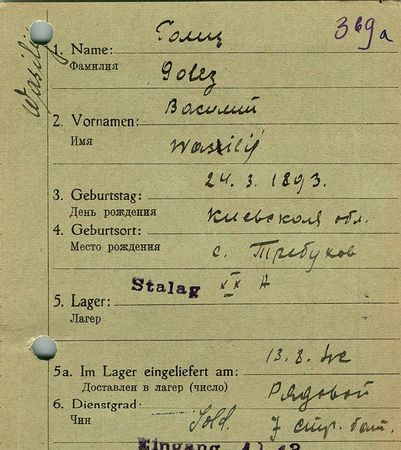 Wasilij
369a
Голец
1. Name:
Фамилия
Golez
Василий
2. Vornamen:
Имя
Wasilij
24. 3. 1893.
3. Geburtstag:
День рождения
Киевская обл.
4. Geburtsort:
Место рождения
с. Требухов
Stalag XX A
5. Lager:
Лагерь
13. 8. 42
5a. Im Lager eingeliefert am:
Доставлен в лагерь (число)
Рядовой
6. Dienstgrad:
Чин
Sold.
7 стр. бат.
Eingang